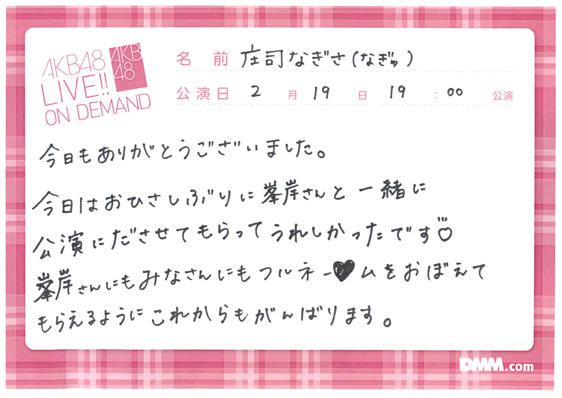 AKB48
LIVE!!
ON DEMAND
AKB
48
名前 庄司なぎさ(なぎゅ)
公演日 2月19日 19:00 公演
今日もありがとうございました。
今日はおひさしぶりに峯岸さんと一緒に
公演にださせてもらってうれしかったです♡
峯岸さんにもみなさんにもフルネー♥ムをおぼえて
もらえるようにこれからもがんばります。
DMM.com